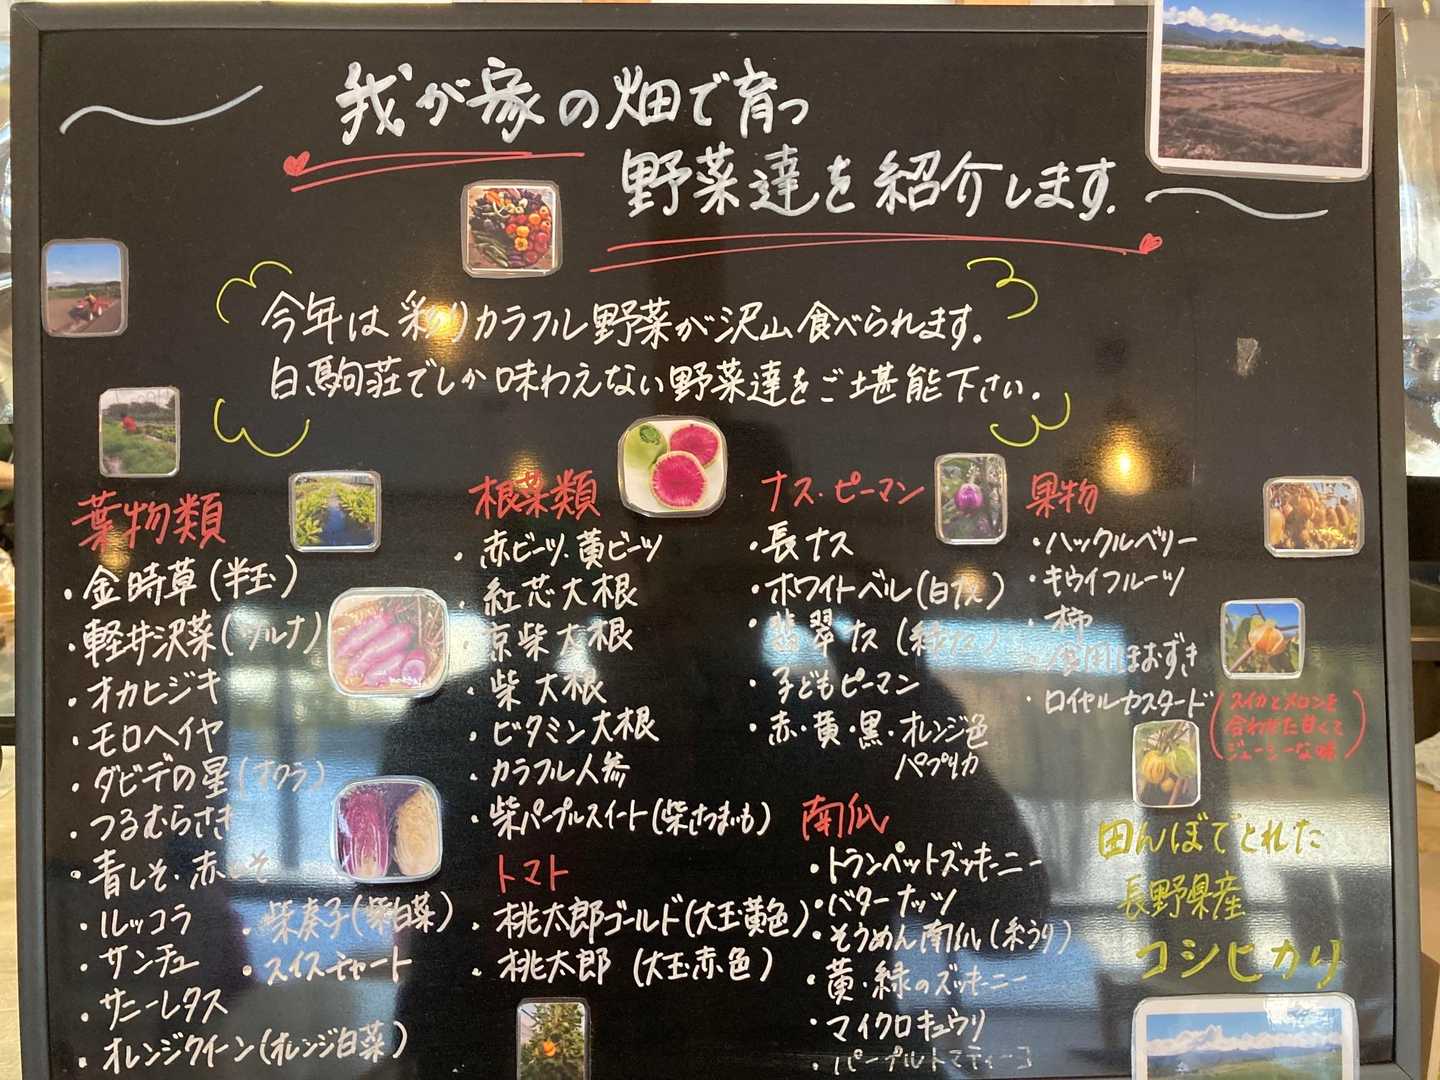 我が家の畑で育つ
野菜達を紹介します。
今年は彩りカラフル野菜が沢山食べられます。
白駒荘でしか味わえない野菜達をご堪能下さい。
葉物類
・金時草(半玉)
・軽井沢菜(ツルナ)
・オカヒジキ
・モロヘイヤ
・ダビデの星(オクラ)
・つるむらさき
・青しそ・赤しそ
・ルッコラ
・サンチュ
・サニーレタス
・オレンジクイーン(オレンジ白菜)
・紫奏子(紫白菜)
・スイスチャート
根菜類
・赤ビーツ・黄ビーツ
・紅芯大根
・京紫大根
・紫大根
・ビタミン大根
・カラフル人参
・紫パープルスイート(紫さつまいも)
トマト
・桃太郎ゴールド(大玉黄色)
・桃太郎(大玉赤色)
ナス・ピーマン
・長ナス
・ホワイトベル(白ナス)
・翡翠ナス(緑ナス)
・子どもピーマン
・赤・黄・黒・オレンジ色
パプリカ
南瓜
・トランペットズッキーニー
・バターナッツ
・そうめん南瓜(糸うり)
・黄・緑のズッキーニー
・マイクロキュウリ
・パープルトマティーヨ
果物
・ハックルベリー
・キウイフルーツ
・柿
・食用ほおずき
・ロイヤルカスタード
(スイカとメロンを
合わせた甘くて
ジューシーな味)
田んぼでとれた
長野県産
コシヒカリ